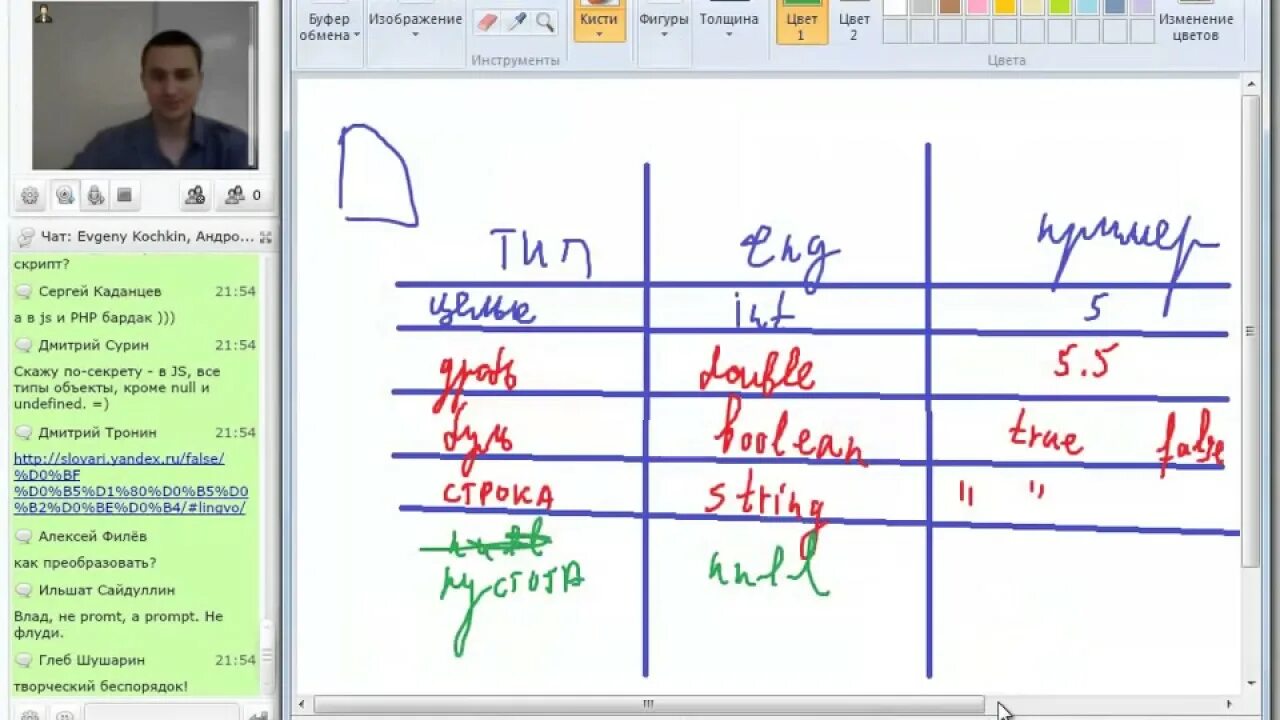 Буфер обмена
Изображение
Инструменты
Кисти
Фигуры
Толщина
Цвет 1
Цвет 2
Изменение цветов
Цвета
0
Чат: Evgeny Kochkin, Андро...
скрипт?
Сергей Каданцев 21:54
а в js и PHP бардак )))
Дмитрий Сурин 21:54
Скажу по-секрету - в JS, все
типы объекты, кроме null и
undefined. =)
Дмитрий Тронин 21:54
http://slovari.yandex.ru/false/
%D0%BF
%D0%B5%D1%80%D0%B5%D0
%B2%D0%BE%D0%B4/#lingvo/
Алексей Филёв
как преобразовать?
Ильшат Сайдуллин
Влад, не promt, а prompt. Не
флуди.
Глеб Шушарин 21:54
творческий беспорядок!
ТИП eng пример
целые int 5
дробь double 5.5
буль boolean true false
СТРОКА string " "
пустота null